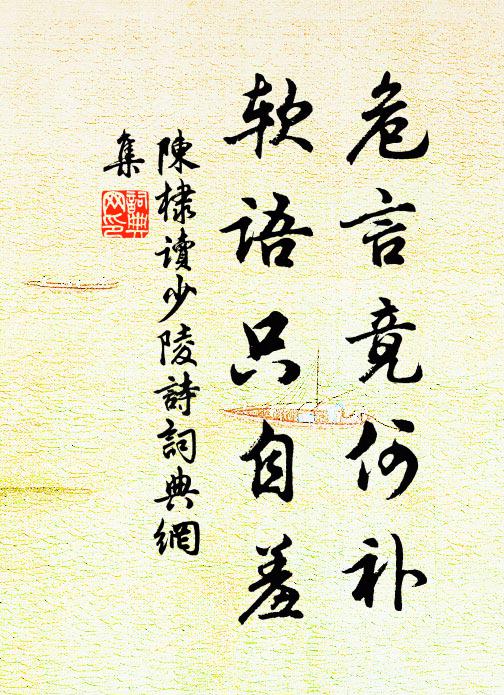 危言竟何补
软语只自羞
陳棣讀少陵詩詞典網
集
詞典网印